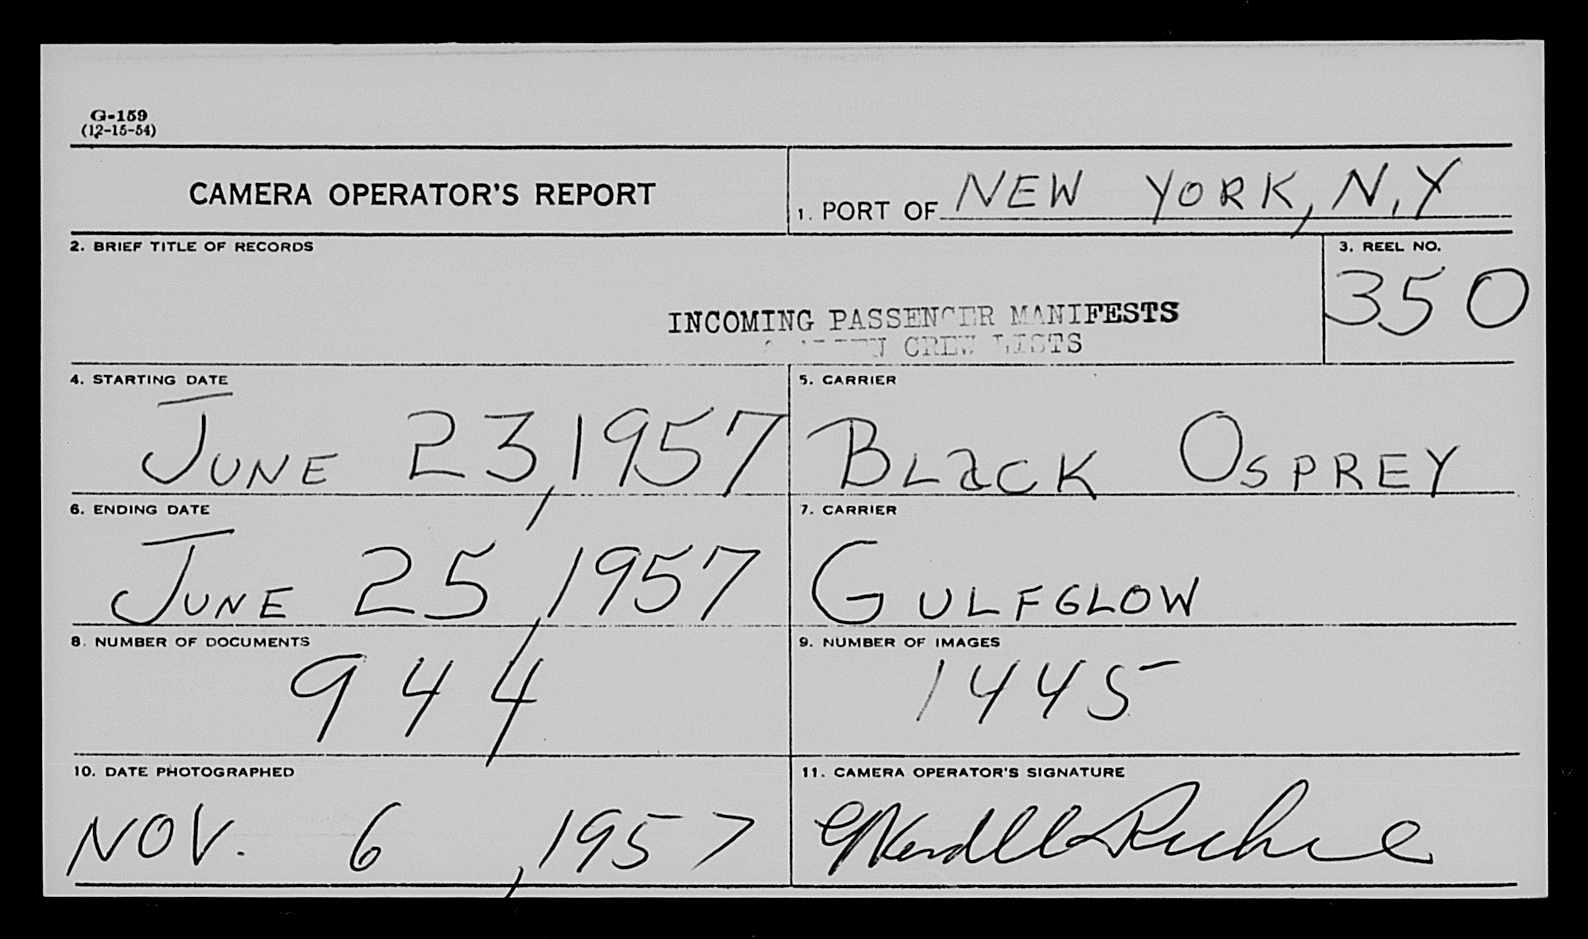 G-159
(12-15-54)
CAMERA OPERATOR'S REPORT
1. PORT OF NEW YORK, N.Y
2. BRIEF TITLE OF RECORDS
3. REEL NO.
350
INCOMING PASSENGER MANIFESTS
CREW LISTS
4. STARTING DATE
JUNE 23, 1957
5. CARRIER
BLaCK OSPREY
6. ENDING DATE
JUNE 25, 1957
7. CARRIER
GULFGLOW
8. NUMBER OF DOCUMENTS
944
9. NUMBER OF IMAGES
1445
10. DATE PHOTOGRAPHED
NOV. 6, 1957
11. CAMERA OPERATOR'S SIGNATURE